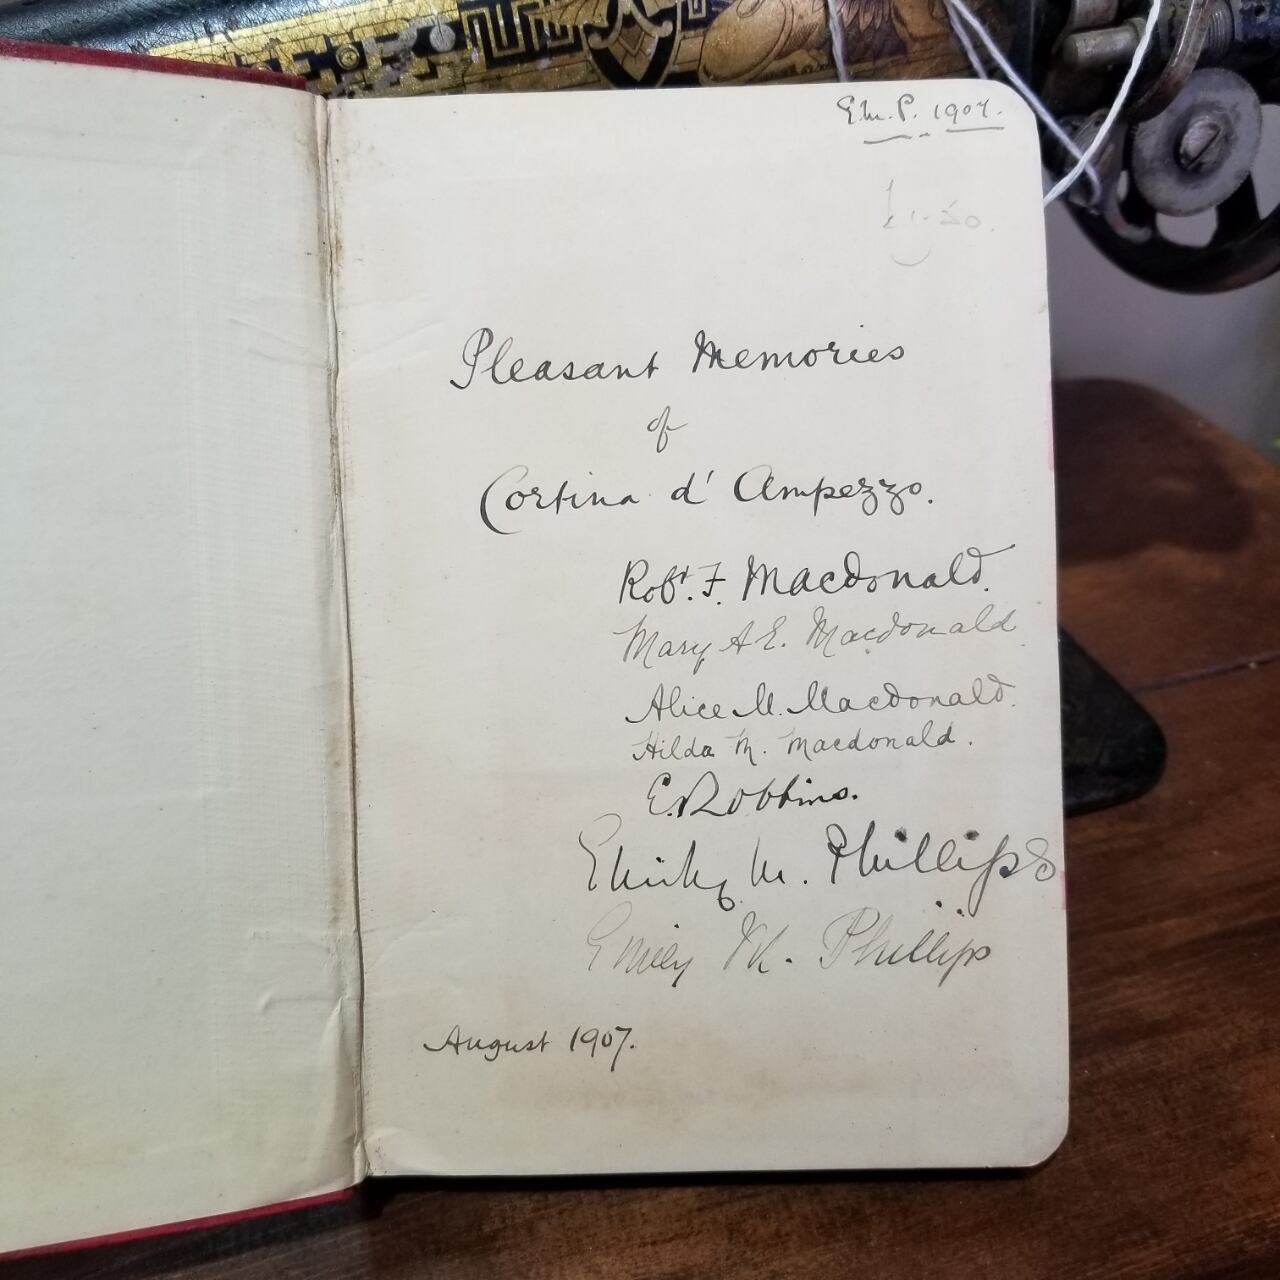 E.M.P. 1907.
Pleasant Memories
of
Cortina d' Ampezzo.
Robt. F. Macdonald.
Mary A E. Macdonald.
Alice M. Macdonald.
Hilda M. Macdonald.
E. Robbins.
Emily M. Phillips
Emily M. Phillips
August 1907.